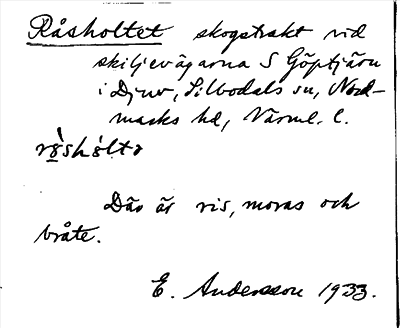 Råsholtet skogstrakt vid
skiljevägarna S Göptjärn
i Djuv, Silbodals sn, Nord-
marks hd, Värml. l.
rɷ̀shól̀tə
Där är ris, moras och
bråte.
E. Andersson 1933.